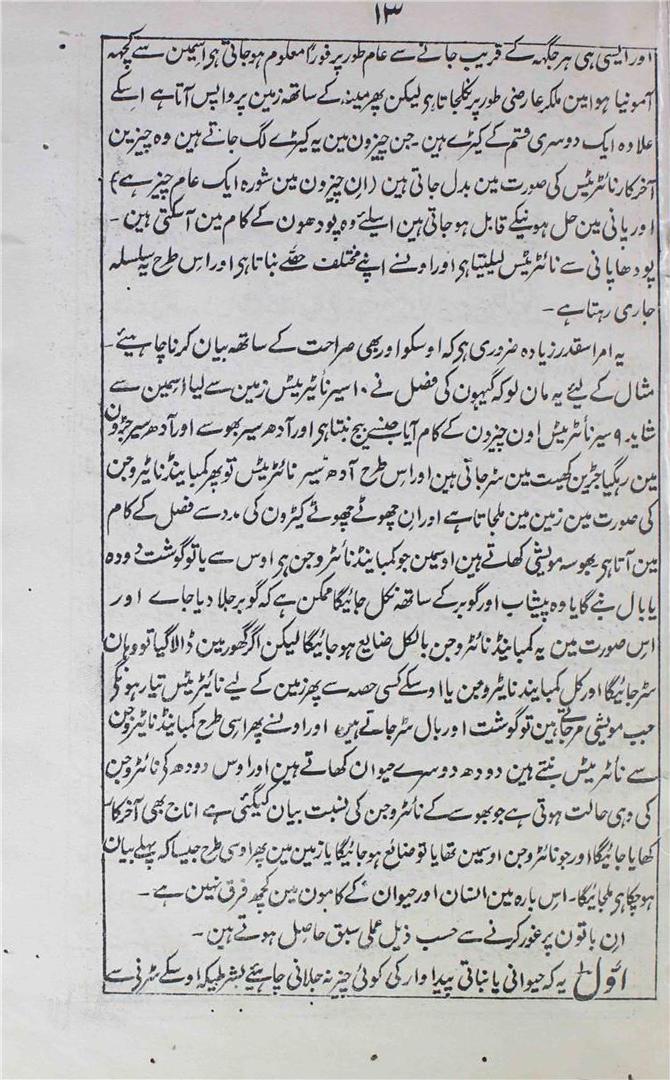 ۱۳
اور ایسی ہی ہر جگہہ کے قریب جانے سے عام طور پر فوراً معلوم ہو جاتی ہی اسمین سے کچھہ
آمونیا ہوا مین ملکر عارضی طور پر نکلجاتا ہی لیکن پھر مینہ کے ساتھہ زمین پر واپس آتا ہے اسکے
علاوہ ایک دوسری قسم کے کیڑے ہین ۔ جن چیزون مین یہ کیڑے لگ جاتے ہین وہ چیزین
آخر کار نائٹریٹس کی صورت مین بدل جاتی ہین (ان چیزون مین شورہ ایک عام چیز ہے)
اور پانی مین حل ہونیکے قابل ہو جاتی ہین اسیلئے وہ پودھون کے کام مین آسکتی ہین ۔
پودھا پانی سے نائٹریٹس لیلیتا ہی اور اونسے اپنے مختلف حصّے بناتا ہی اور اس طرح یہ سلسلہ
جاری رہتا ہے ۔
یہ امر اسقدر زیادہ ضروری ہی کہ اوسکو اور بھی صراحت کے ساتھہ بیان کرنا چاہیئے ۔
مثال کے لیئے یہ مان لو کہ گیہون کی فصل نے ۱۰ سیر نائٹریٹس زمین سے لیا اسمین سے
شاید ۹ سیر نائٹریٹس اون چیزون کے کام آیا جنسے بیج بنتا ہی اور آدھ سیر بھوسے اور آدھ سیر جڑون
مین رہگیا جڑین کھیت مین سڑ جاتی ہین اور اس طرح آدھ سیر نائٹریٹس تو پھر کمبائینڈ نائٹروجن
کی صورت مین زمین مین ملجاتا ہے اور ان چھوٹے چھوٹے کیڑون کی مدد سے فصل کے کام
مین آتا ہی بھوسہ مویشی کھاتے ہین اوسمین جو کمبائینڈ نائٹروجن ہی اوس سے یا تو گوشت دودہ
یا بال بنے گا یا وہ پیشاب اور گوبر کے ساتھہ نکل جائیگا ممکن ہے کہ گوبر جلا دیا جاے اور
اس صورت مین یہ کمبائینڈ نائٹروجن بالکل ضایع ہو جائیگا لیکن اگر گھور مین ڈالا گیا تو وہان
سڑ جائیگا اور کل کمبائینڈ نائٹروجن یا اوسکے کسی حصہ سے پھر زمین کے لیے نائٹریٹس تیار ہونگے
جب مویشی مر جاتے ہین تو گوشت اور بال سڑ جاتے ہین اور اونسے پھر اسی طرح کمبائینڈ نائٹروجن
سے نائٹریٹس بنتے ہین دودھ دوسرے حیوان کھاتے ہین اور اوس دودھ کی نائٹروجن
کی وہی حالت ہوتی ہے جو بھوسے کے نائٹروجن کی نسبت بیان کیگئی ہے اناج بھی آخر کار
کھایا جائیگا اور جو نائٹروجن اوسمین تھا یا تو ضائع ہو جائیگا یا زمین مین پھر اوسی طرح جیسا کہ پہلے بیان
ہو چکا ہی ملجائیگا ۔ اس بارہ مین انسان اور حیوان کے کامون مین کچھہ فرق نہین ہے ۔
ان باتون پر غور کرنے سے حسب ذیل عملی سبق حاصل ہوتے ہین ۔
اوّل یہ کہ حیوانی یا نباتی پیداوار کی کوئی چیز نہ جلانی چاہیئے بشرطیکہ اوسکے سڑنی سے